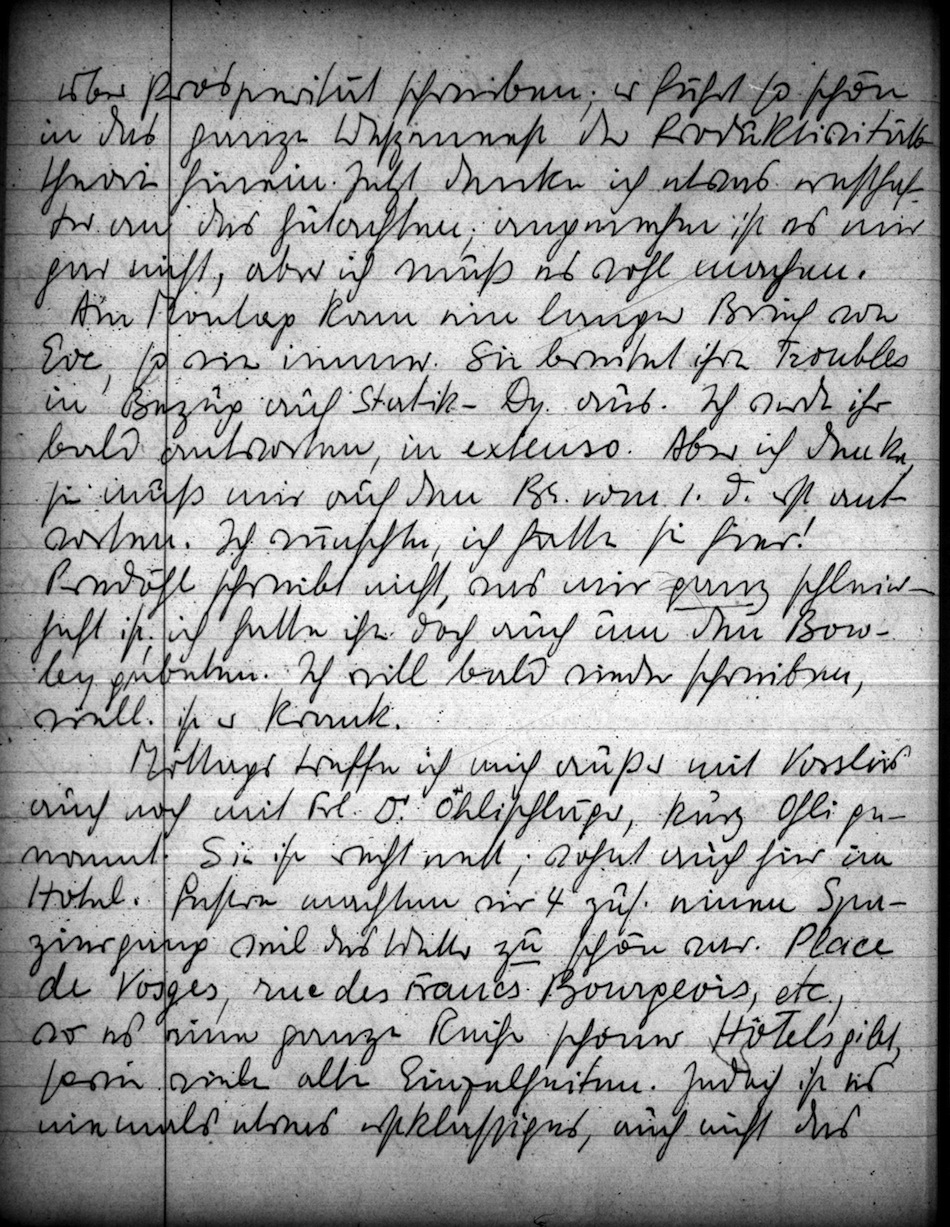 über Prosperität schreiben; er führt so schön
in das ganze Wespennest der Produktivitäts-
theorie hinein. Jetzt denke ich etwas ernsthaf-
ter an das Gutachten; angenehm ist es mir
gar nicht, aber ich muß es wohl machen.
Am Montag kam ein langer Brief von
Eve, so wie immer. Sie breitet ihre Troubles
in Bezug auf Statik-Dy. aus. Ich werde ihr
bald antworten, in extenso. Aber ich denke,
sie muß mir auf den Br. vom 1. d. erst ant-
worten. Ich wünschte, ich hätte sie hier!
Predöhl schreibt nicht, was mir ganz schleier-
haft ist; ich hatte ihn doch auch um den Bow-
ley gebeten. Ich will bald wieder schreiben,
viell. ist er krank.
Mittags treffe ich mich außer mit Vasslois
auch noch mit Frl. Ö. Öhlischlüger, kurz Ohli ge-
nannt. Sie ist recht nett; wohnt auch hier im
Hôtel. Gestern machten wir 4 zus. einen Spa-
ziergang weil das Wetter zu schön war. Place
de Vosges, rue des Francs Bourgeois, etc.,
wo es eine ganze Reihe schöner Hôtels gibt,
sowie viele alte Einzelheiten. Jedoch ist es
niemals etwas erstklassiges, auch nicht das